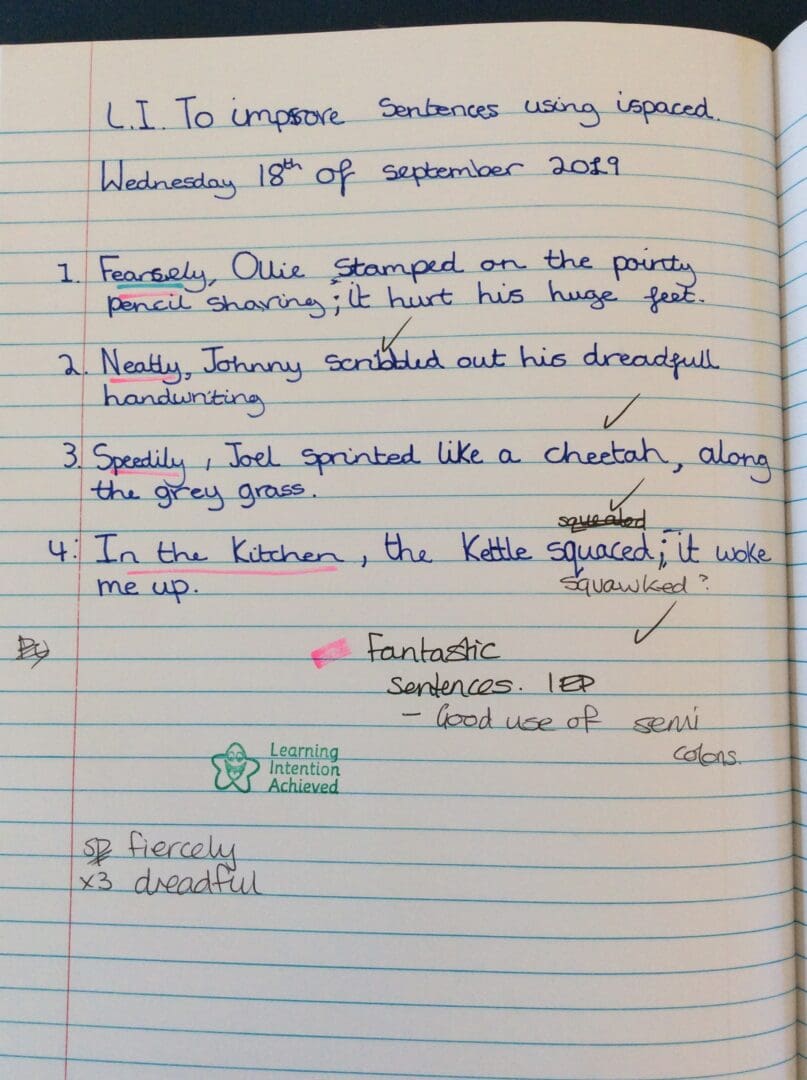 L.I. To improve Sentences using ispaced.
Wednesday 18th of September 2019
1. Fearsely, Ollie stamped on the pointy
pencil sharing; it hurt his huge feet.
2. Neatly, Johnny scribbled out his dreadfull
handwriting
3. Speedily, Joel sprinted like a cheetah, along
the grey grass.
squealed
4. In the Kitchen, the Kettle squaced; it woke
me up.
squawked?
Fantastic
Sentences. 1EP
- Good use of semi
colons.
Learning
Intention
Achieved
sp fiercely
x3 dreadful